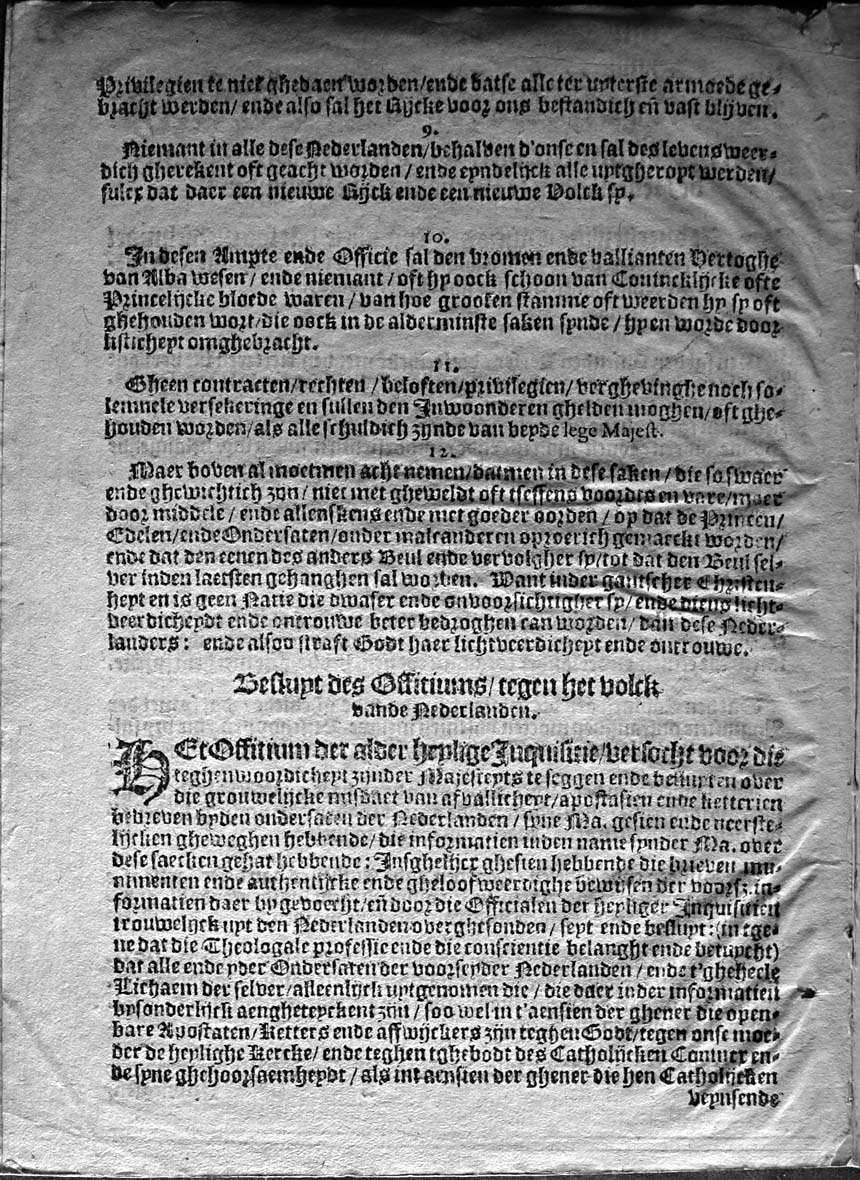 Privilegien te niet ghedaen worden/ende datse alle ter uyterste armoede ge-
bracht werden/ ende also sal het Rijcke voor ons bestandich eñ vast blijven.
9.
Niemant in alle dese Nederlanden/behalven d'onse en sal des levens weer-
dich gherekent oft geacht worden / ende eyndelijck alle uytgheropt werden/
sulcx dat daer een nieuwe Rijck ende een nieuwe Volck sy.
10.
In desen Ampte ende Officie sal den vromen ende vallianten Hertoghe
van Alba wesen / ende niemant / oft hy oock schoon van Conincklijcke ofte
Princelijcke bloede waren / van hoe grooten stamme oft weerden hy sy oft
ghehouden wort/die oock in de alderminste saken synde / hy en worde door
listicheyt omghebracht.
11.
Gheen contracten/rechten /beloften/privilegien/ verghevinghe noch so-
lemnele versekeringe en sullen den Inwoonderen ghelden moghen/oft ghe-
houden worden/als alle schuldich zijnde van beyde lege Majest.
12.
Maer boven al moetmen acht nemen/datmen in dese saken / die so swaer
ende ghewichtich zijn / niet met gheweldt oft tseffens voordts en vare/maer
door middele / ende allenskens ende met goeder oorden / op dat de Princen/
Edelen/ende Ondersaten/onder malcanderen oproerich gemaeckt worden/
ende dat den eenen des anders Beul ende vervolgher sy/tot dat den Beul sel-
ver inden laetsten gehanghen sal worden. Want inder gantscher Christen-
heyt en is geen Natie die dwaser ende onvoorsichtigher sy/ ende diens licht-
veerdicheydt ende ontrouwe beter bedroghen can worden/ dan dese Neder-
landers: ende alsoo straft Godt haer lichtveerdicheyt ende ontrouwe.
Besluyt des Offitiums/ tegen het volck
vande Nederlanden.
HEt Offitium der alder heylige Inquisitie/versocht voor die
teghenwoordicheyt zijnder Majesteyts te seggen ende besluyten over
die grouwelijcke misdaet van afvallicheyt/apostasien ende ketterien
bedreven byden ondersaten der Nederlanden / syne Ma. gesien ende neerste-
lijcken gheweghen hebbende/ die informatien inden name synder Ma. over
dese saecken gehat hebbende: Insghelijcx ghesien hebbende die brieven mu-
nimenten ende authentijcke ende gheloofweerdighe bewijsen der voorsz. in-
formatien daer by gevoecht/ eñ door die Officialen der heyliger Inquisitien
trouwelijck uyt den Nederlanden overghesonden/ seyt ende besluyt: (in tge-
ne dat die Theologale professie ende die conscientie belanght ende betuycht)
dat alle ende yder Ondersaten der voorseyder Nederlanden / ende t'gheheele
Lichaem der selver/alleenlijck uytgenomen die / die daer inder informatien
bysonderlijck aengheteyckent zijn / soo wel in t'aensien der ghener die open-
bare Apostaten/Ketters ende affwijckers zijn teghen Godt/tegen onse moe-
der de heylighe Kercke/ ende teghen tghebodt des Catholijcken Conincx en-
de syne ghehoorsaemheydt / als int aensien der ghener die hen Catholijcken
veynsende